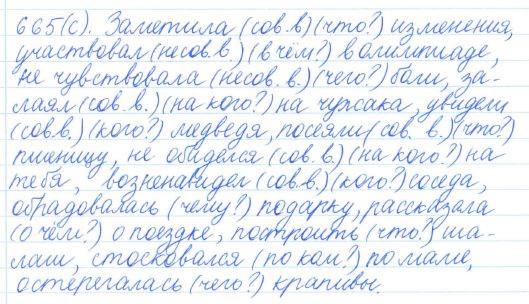 665(с). Заметила (сов.в) (что?) изменения,
участвовал (несов.в.) (в чём?) в олимпиаде,
не чувствовала (несов. в.) (чего?) боли, за-
лаял (сов. в.) (на кого?) на чужака, увидели
(сов.в.) (кого?) медведя, посеяли (сов. в.) (что?)
пшеницу, не обиделся (сов. в.) (на кого?) на
тебя, возненавидел (сов.в.) (кого?) соседа,
обрадовалась (чему?) подарку, рассказала
(о чём?) о поездке, построить (что?) ша-
лаш, стосковался (по ком?) по маме,
остерегалась (чего?) крапивы.